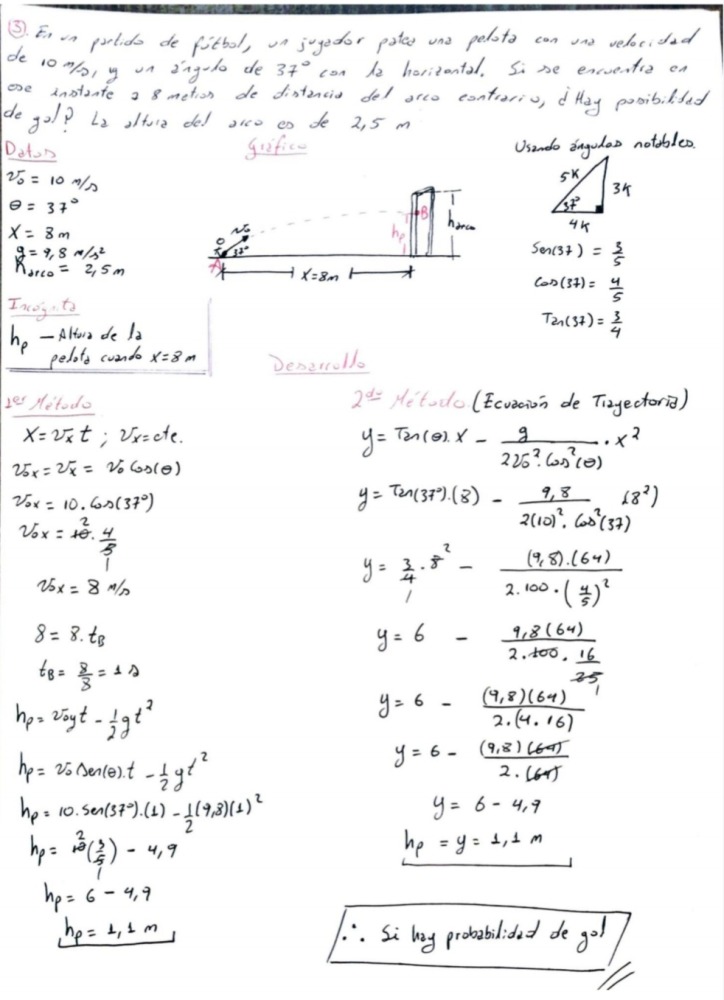 ③. En un partido de fútbol, un jugador patea una pelota con una velocidad
de 10 m/s, y un ángulo de 37° con la horizontal. Si se encuentra en
ese instante a 8 metros de distancia del arco contrario, ¿Hay posibilidad
de gol? La altura del arco es de 2,5 m
Datos
v₀ = 10 m/s
θ = 37°
X = 8m
g = 9,8 m/s²
h arco = 2,5 m
Gráfico
v₀
37°
A
B
hp
h arco
X=8m
Usando ángulos notables.
5K
3K
37°
4K
Sen(37) = 3/5
Cos(37) = 4/5
Tan(37) = 3/4
Incógnita
hp — Altura de la
pelota cuando X=8m
Desarrollo
1er Método
X = vx t ; vx=cte.
v₀x = vx = v₀ Cos(θ)
v₀x = 10. Cos(37°)
v₀x = 10. 4/5
2
1
v₀x = 8 m/s
8 = 8. tB
tB = 8/8 = 1 s
hp = v₀y t - 1/2 g t²
hp = v₀ Sen(θ).t - 1/2 g t²
hp = 10. Sen(37°).(1) - 1/2 (9,8)(1)²
hp = 10 (3/5) - 4,9
2
1
hp = 6 - 4,9
hp = 1,1 m
2do Método (Ecuación de Trayectoria)
y = Tan(θ). X - g / 2v₀². Cos²(θ) . X²
y = Tan(37°).(8) - 9,8 / 2(10)². Cos²(37) (8²)
y = 3/4 . 8 - (9,8).(64) / 2.100.(4/5)²
2
1
y = 6 - 9,8(64) / 2.100. 16/25
1
y = 6 - (9,8)(64) / 2.(4.16)
y = 6 - (9,8)(64) / 2.(64)
y = 6 - 4,9
hp = y = 1,1 m
∴ Si hay probabilidad de gol